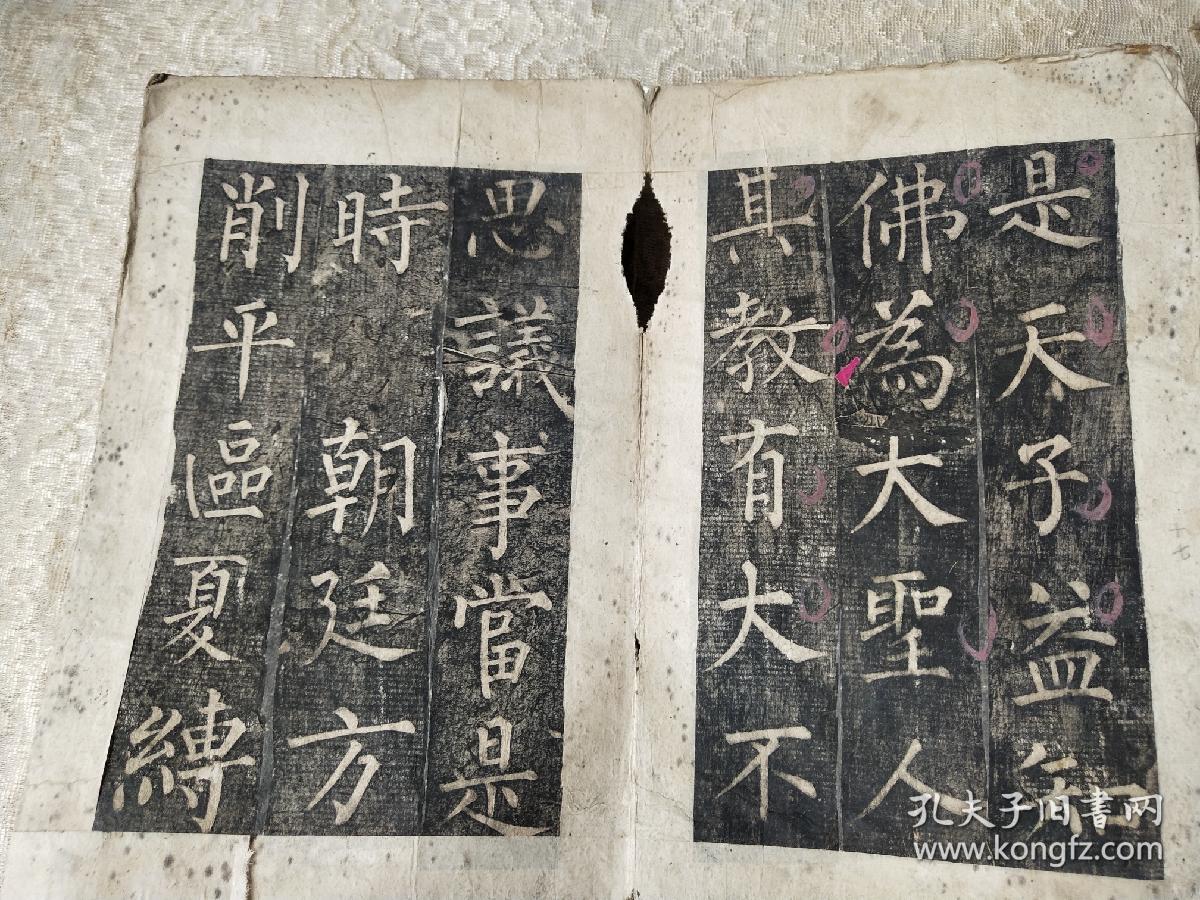 是天子益知
佛為大聖人
其教有大不
思議事當是
時朝廷方
削平區夏縛
十七
孔夫子旧書网
www.kongfz.com